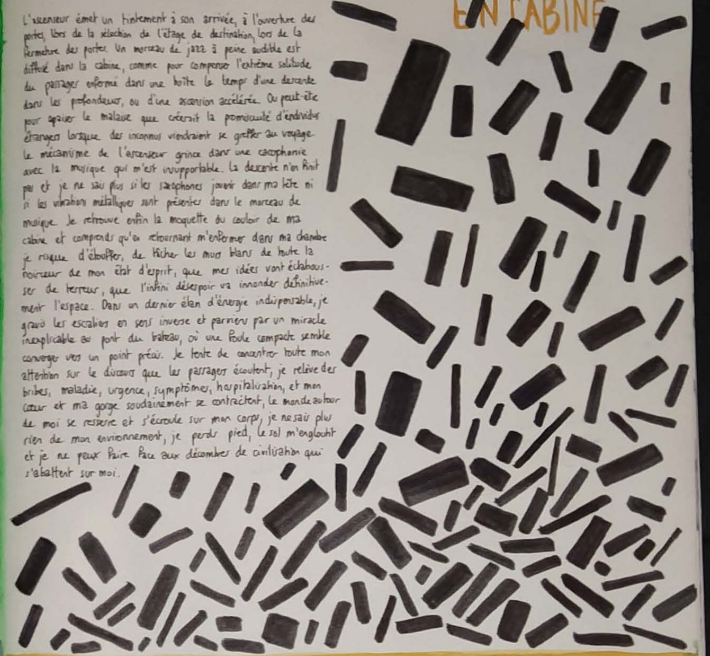 EN CABINE
L'ascenseur émet un tintement à son arrivée, à l'ouverture des
portes, lors de la sélection de l'étage de destination, lors de la
fermeture des portes. Un morceau de jazz à peine audible est
diffusé dans la cabine, comme pour compenser l'extrême solitude
du passager enfermé dans une boîte le temps d'une descente
dans les profondeurs, ou d'une ascension accélérée. Ou peut-être
pour apaiser le malaise que créerait la promiscuité d'individus
étrangers lorsque des inconnus viendraient se greffer au voyage.
Le mécanisme de l'ascenseur grince dans une cacophonie
avec la musique qui m'est insupportable. La descente n'en finit
pas et je ne sais plus si les saxophones jouent dans ma tête ni
si les vibrations métalliques sont présentes dans le morceau de
musique. Je retrouve enfin la moquette du couloir de ma
cabine et comprends qu'en retournant m'enfermer dans ma chambre
je risque d'étouffer, de tâcher les murs blancs de toute la
noirceur de mon état d'esprit, que mes idées vont éclabous-
ser de terreur, que l'infini désespoir va innonder définitive-
ment l'espace. Dans un dernier élan d'énergie indispensable, je
gravis les escaliers en sens inverse et parviens par un miracle
inexplicable au pont du bateau, où une foule compacte semble
converger vers un point précis. Je tente de concentrer toute mon
attention sur le discours que les passagers écoutent, je relève des
bribes, maladie, urgence, symptômes, hospitalisation, et mon
cœur et ma gorge soudainement se contractent, le monde autour
de moi se resserre et s'écroule sur mon corps, je ne sais plus
rien de mon environnement, je perds pied, le sol m'engloutit
et je ne peux faire face aux décombres de civilisation qui
s'abattent sur moi.